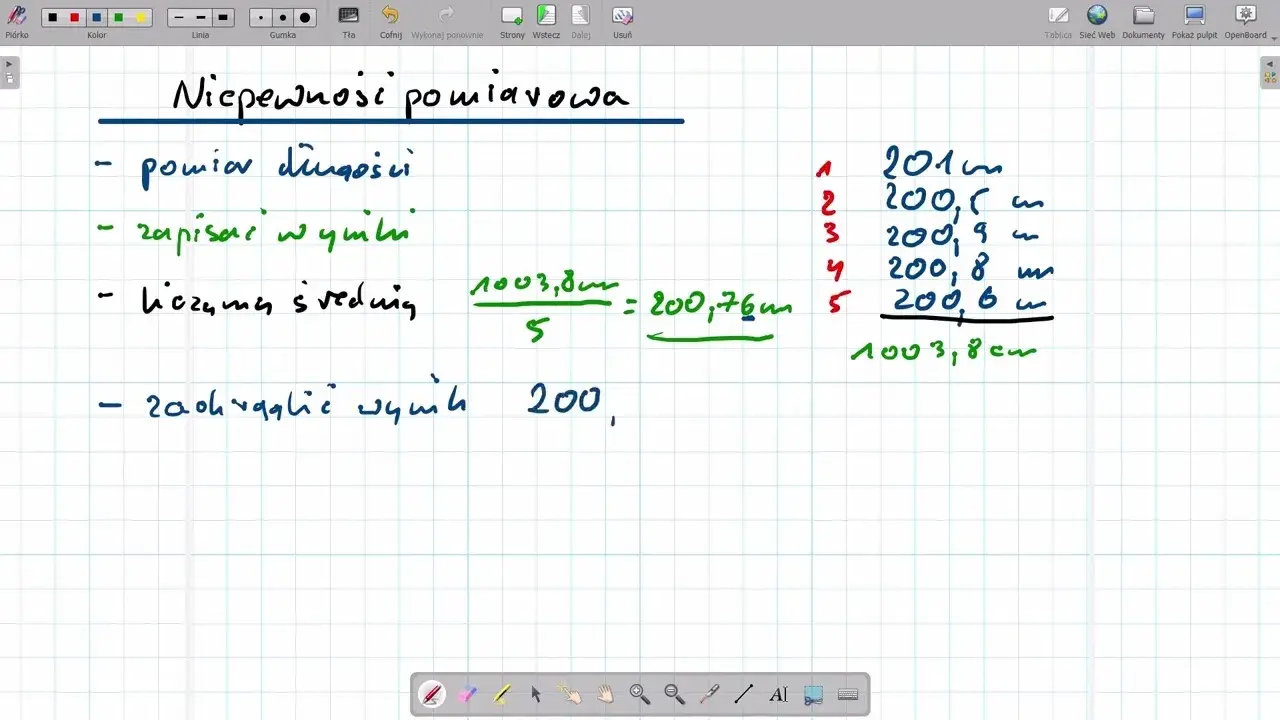 Piórko Kolor Linia Gumka Tła Cofnij Wykonaj ponownie Strony Wstecz Dalej Usuń Tablica Sieć Web Dokumenty Pokaż pulpit OpenBoard
Niepewność pomiarowa
- pomiar długości
- zapisać wyniki
- liczymy średnią 1003,8cm
5
= 200,76cm
- zaokrąglić wynik 200,
1 201cm
2 200,5 cm
3 200,9 cm
4 200,8 cm
5 200,6 cm
1003,8 cm